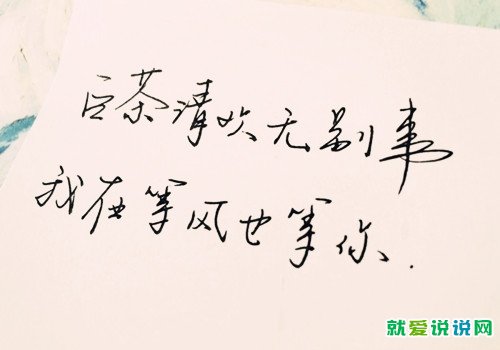 豆茶清欢无别事
我在等风也等你.
就爱说说网